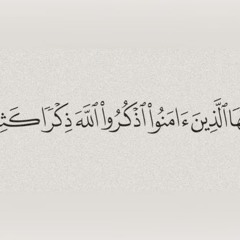 ـهَا ٱلَّذِينَ ءَامَنُوا۟ ٱذْكُرُوا۟ ٱللَّهَ ذِكْرًا كَثِيـ